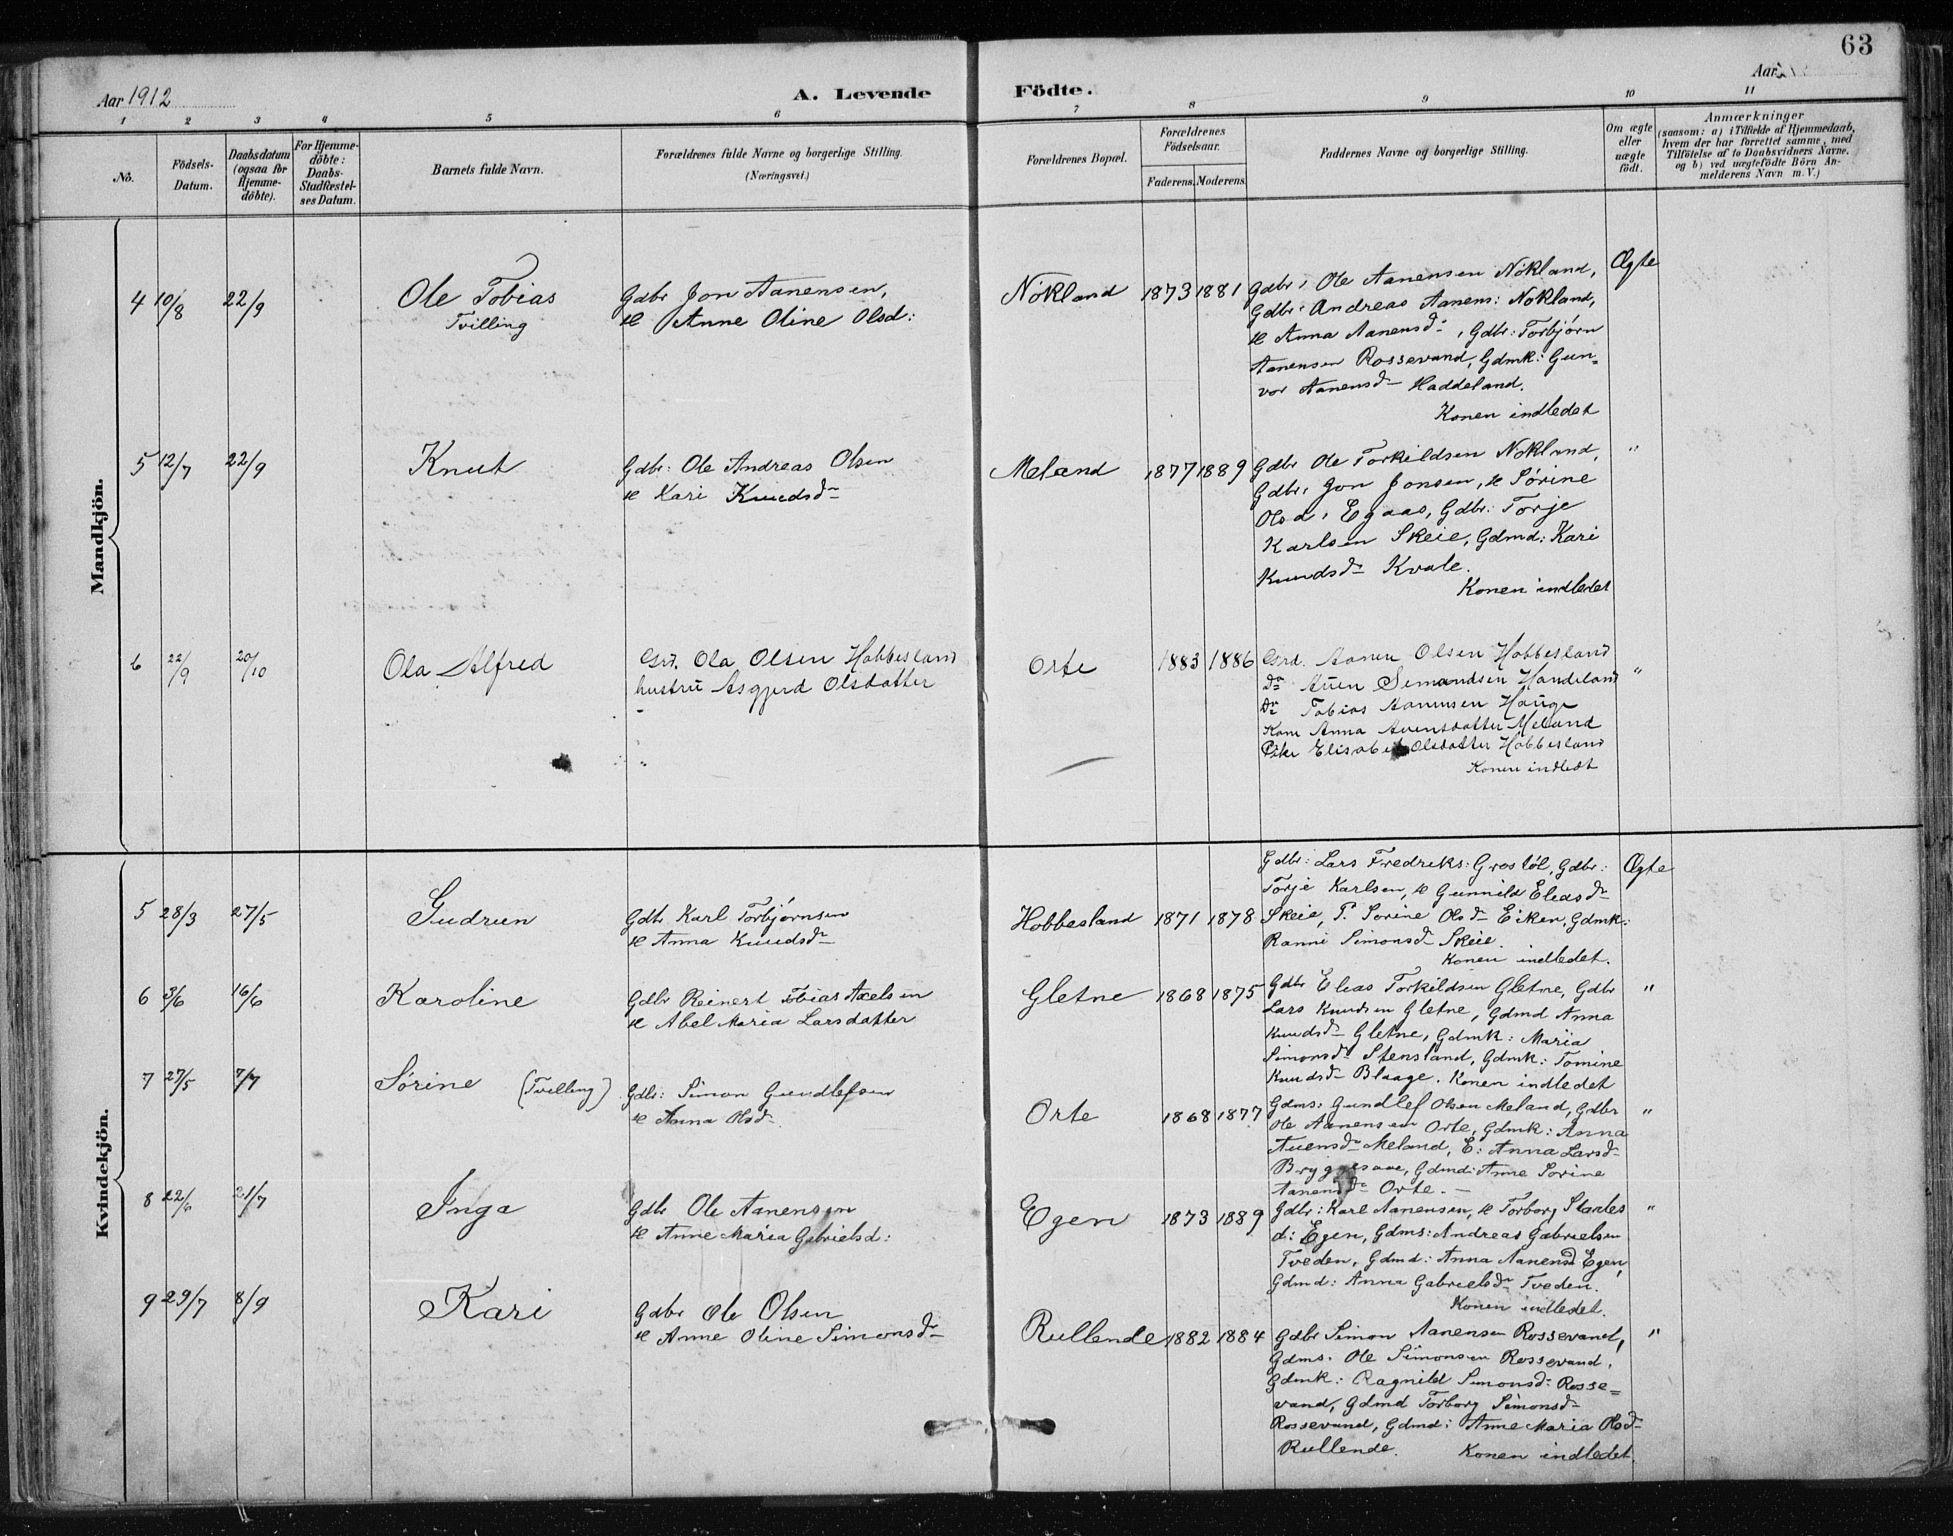 63
Aar 1912
A. Levende Födte.
Aar
1 2 3 4 5 6 7 8 9 10 11
No.
Födsels-Datum.
Daabsdatum (ogsaa for Hjemme-döbte).
For Hjemme-döbte: Daabs-Stadfæstel-ses Datum.
Barnets fulde Navn.
Forældrenes fulde Navne og borgerlige Stilling.
(Næringsvei.)
Forældrenes Bopæl.
Forældrenes Födselsaar.
Faderens. Moderens.
Faddernes Navne og borgerlige Stilling.
Om ægte eller uægte födt.
Anmærkninger
(saasom: a) i Tilfælde af Hjemmedaab,
hvem der har forrettet samme, med
Tilföielse af to Daabsvidners Navne.
og b) ved uægtefödte Börn An-
melderens Navn m. V.)
Mandkjön.
4 10/8 22/9 Ole Tobias
Tvilling
Gdbr Jon Aanensen,
H Anne Oline Olsd:
Nökland 1873 1881
Gdbr: Ole Aanensen Nökland,
Gdbr: Andreas Aanens: Nökland,
H Anna Aanensd:, Gdbr: Torbjörn
Aanensen Rossevand, Gdmk: Gun=
vor Aanensd Haddeland.
Konen indledet
Ægte
5 12/7 22/9 Knut
Gdbr: Ole Andreas Olsen
H Kari Knudsd
Meland 1877 1889
Gdbr Ole Torkildsen Nökland,
Gdbr, Jon Jonsen, H Sörine
Olsd, Egaas, Gdbr: Torje
Karlsen Skeie, Gdmd: Kari
Knudsd Kvale.
Konen indledet
"
6 22/9 20/10 Ola Alfred
Grd. Ola Olsen Hobbesland
hustru Asgjerd Olsdatter
Orte 1883 1886
Grd. Aanen Olsen Hobbesland
do Auen Simondsen Handeland
do Tobias Aanensen Hauge
Kone Anna Auensdatter Meland
Pike Elisabet Olsdatter Hobbesland
Konen indledt
"
Kvindekjön.
5 28/3 27/5 Gudrun
Gdbr. Karl Torbjørnsen
H Anna Knudsd
Hobbesland 1871 1878
Gdbr: Lars Fredriks: Grostöl, Gdbr:
Torje Karlsen, H Gunnild Eliasd
Skeie, P. Sorine Olsd Eiken, Gdmk:
Ranni Simonsd Skeie.
Konen indledet.
Ægte
6 3/6 16/6 Karoline
Gdbr Reinert Tobias Axelsen
H Abel Maria Larsdatter
Gletne 1868 1875
Gdbr Elias Torkildsen Gletne, Gdbr
Lars Knudsen Gletne, Gdmd Anna
Knudsd Gletne, Gdmk: Maria
Simonsd Stensland, Gdmk: Tomine
Knudsd Blaage. Konen indledet
"
7 27/5 7/7 Sörine (Tvilling)
Gdbr: Simon Gundlefsen
H Anna Olsd
Orte 1868 1877
Gdms: Gundlef Olsen Meland, Gdbr
Ole Aanensen Orte, Gdmk: Anna
Auensd Meland, E: Anna Larsd
Bryggesaae, Gdmd: Anne Sorine
Aanensd Orte.
"
8 22/6 21/7 Inga
Gdbr Ole Aanensen
H Anne Maria Gabrielsd:
Egen 1873 1889
Gdbr: Karl Aanensen, H Torborg
d: Egen, Gdms: Andreas Gabrielsen
Tveden, Gdmd: Anna Aanensd Egen,
Gdmd: Anna Gabrielsd Tveden.
Konen indledet.
"
9 29/7 8/9 Kari
Gdbr Ole Olsen
H Anne Oline Simonsd
Rullende 1882 1884
Gdbr Simon Aanensen Rossevand,
Gdms. Ole Simonsen Rossevand,
Gdmk: Ragnild Simonsd: Rosse=
vand, Gdmd Torborg Simonsd
Rossevand, Gdmd: Anne Maria Olsd
Rullende. Konen indledet.
"